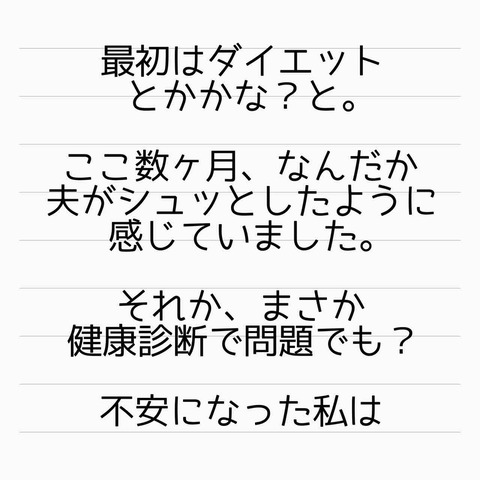 最初はダイエット
とかかな？と。
ここ数ヶ月、なんだか
夫がシュッとしたように
感じていました。
それか、まさか
健康診断で問題でも？
不安になった私は